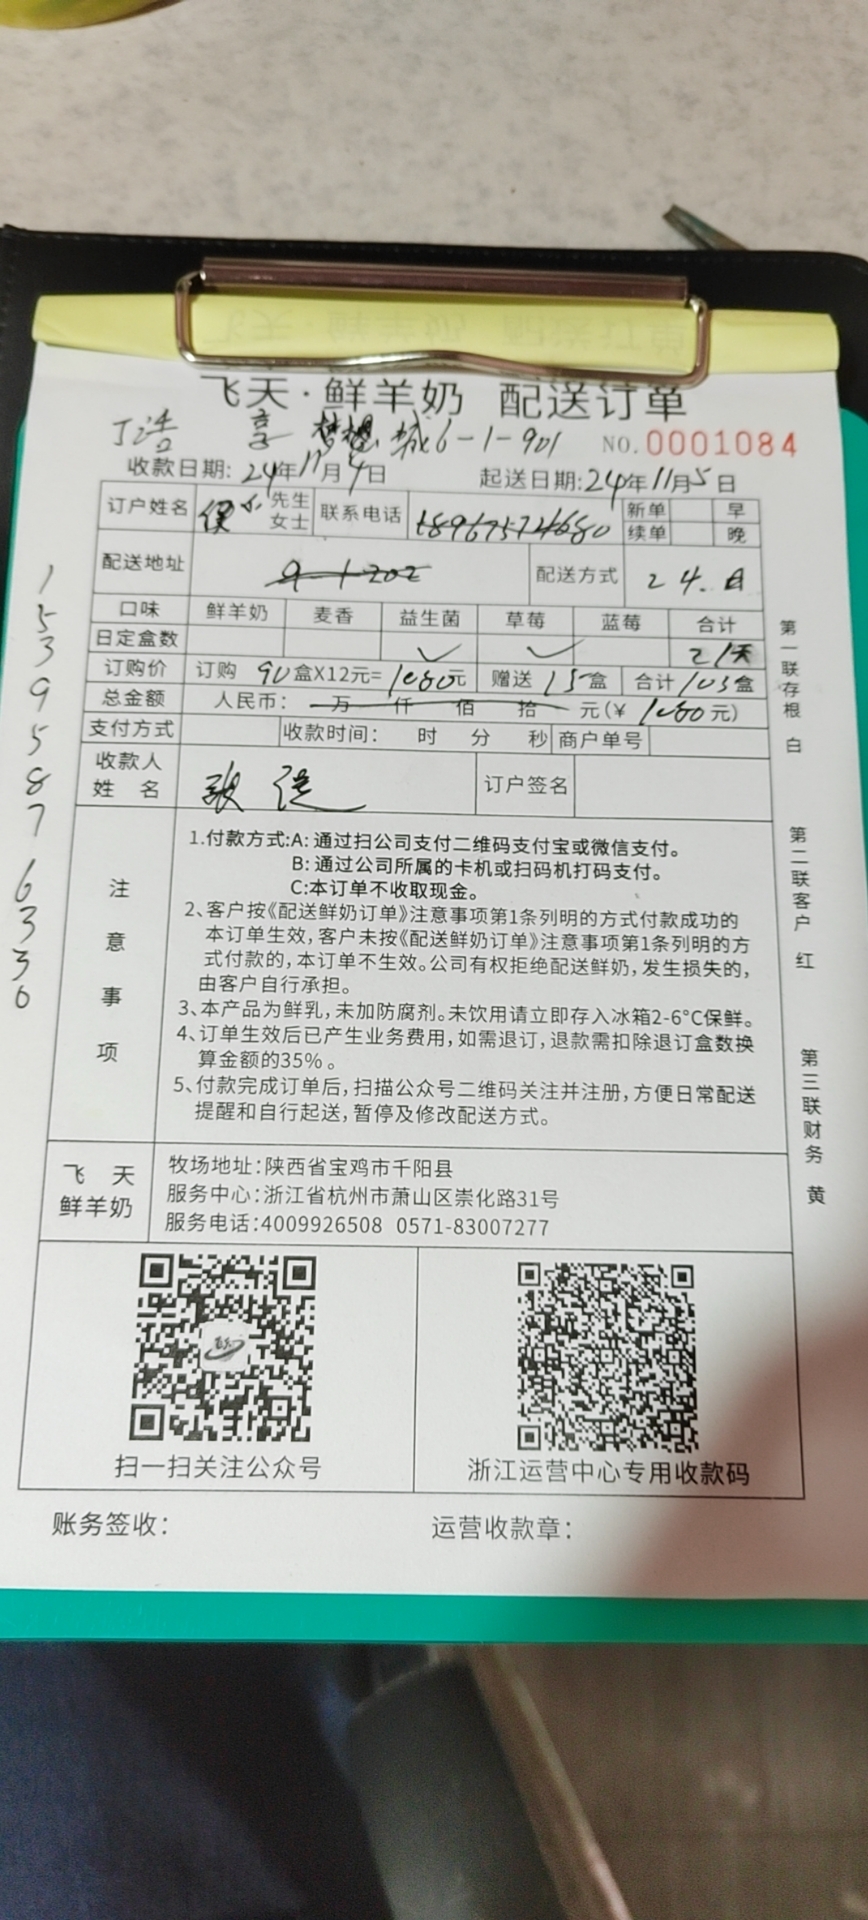 飞天·鲜羊奶 配送订单
丁浩 享 梦想城6-1-901 NO.0001084
收款日期:24年11月4日 起送日期:24年11月5日
订户姓名 先生 女士 联系电话 新单 续单 早 晚
配送地址 9-1-202 配送方式 24.日
口味 鲜羊奶 麦香 益生菌 草莓 蓝莓 合计
日定盒数 ✓ ✓ 2/天
订购价 订购 90盒X12元=1080元 赠送 15盒 合计105盒
总金额 人民币: 万 仟 佰 拾 元(¥ 1080元)
支付方式 收款时间: 时 分 秒 商户单号
收款人姓名 张 订户签名
注意事项
1.付款方式:A: 通过扫公司支付二维码支付宝或微信支付。
B: 通过公司所属的卡机或扫码机打码支付。
C:本订单不收取现金。
2、客户按《配送鲜奶订单》注意事项第1条列明的方式付款成功的
本订单生效,客户未按《配送鲜奶订单》注意事项第1条列明的方
式付款的,本订单不生效。公司有权拒绝配送鲜奶,发生损失的,
由客户自行承担。
3、本产品为鲜乳,未加防腐剂。未饮用请立即存入冰箱2-6°C保鲜。
4、订单生效后已产生业务费用,如需退订,退款需扣除退订盒数换
算金额的35%。
5、付款完成订单后,扫描公众号二维码关注并注册,方便日常配送
提醒和自行起送,暂停及修改配送方式。
飞天
鲜羊奶
牧场地址:陕西省宝鸡市千阳县
服务中心:浙江省杭州市萧山区崇化路31号
服务电话:4009926508 0571-83007277
扫一扫关注公众号 浙江运营中心专用收款码
账务签收: 运营收款章:
15395876330
第一联存根 白
第二联客户 红
第三联财务 黄